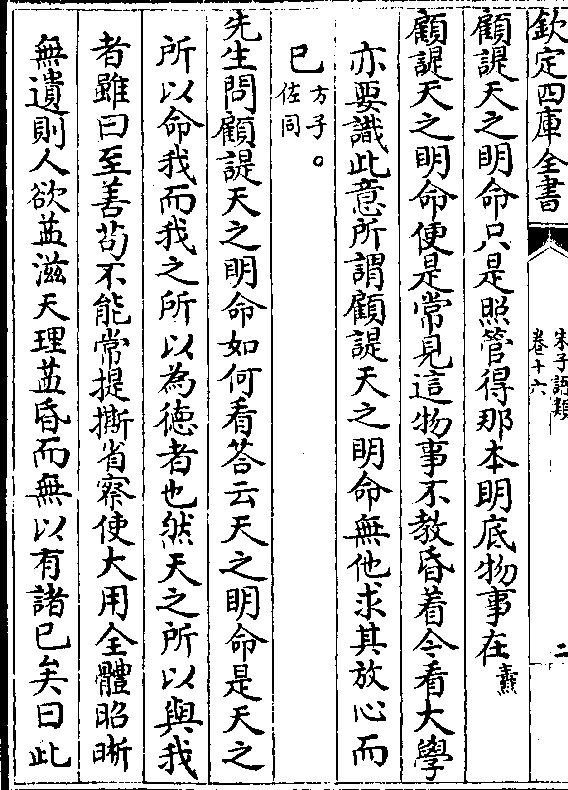 欽定四庫全書
朱子語類
卷十六
二
顧諟天之明命只是照管得那本明底物事在燾
顧諟天之明命便是常見這物事不教昏着今看大學
亦要識此意所謂顧諟天之明命無他求其放心而
已方子○佐同
先生問顧諟天之明命如何看答云天之明命是天之
所以命我而我之所以為徳者也然天之所以與我
者雖曰至善苟不能常提撕省察使大用全體昭晰
無遺則人欲益滋天理益昏而無以有諸已矣曰此